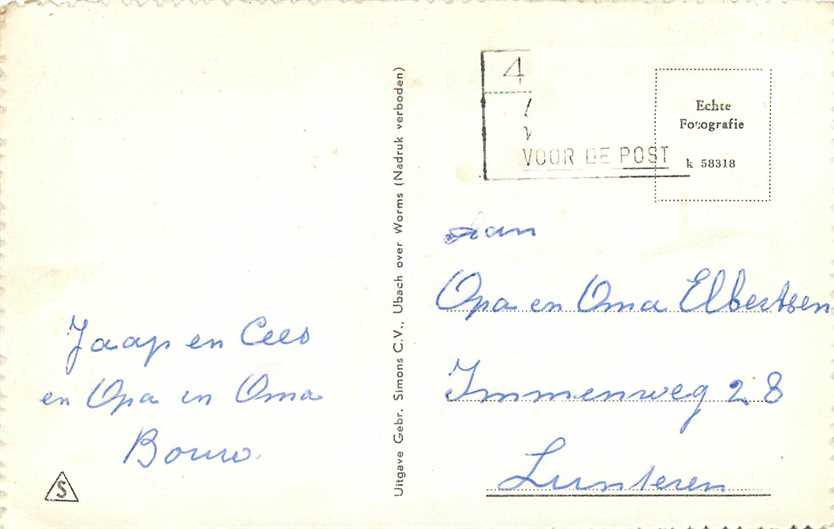 Jaap en Cees
en Opa en Oma
Bouw.
S
Uitgave Gebr. Simons C.V., Ubach over Worms (Nadruk verboden)
4
VOOR DE POST
Echte
Fotografie
k 58318
aan
Opa en Oma Elbertsen
Immenweg 28
Lunteren